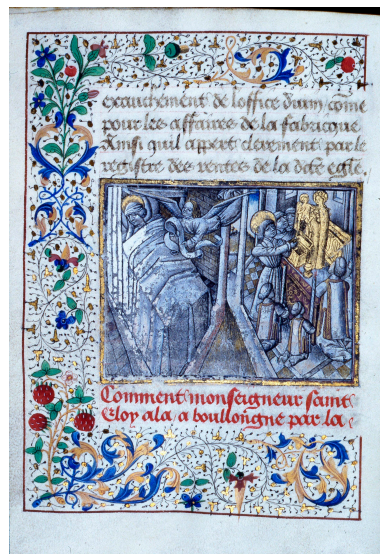 exauchement de loffice diuin cōme
pour les affaires de la fabricque
Ainsi quil appert clerement par le
registre des rentes de la dcte egle
Comment monseigneur saint
Eloy ala a boullongne par la